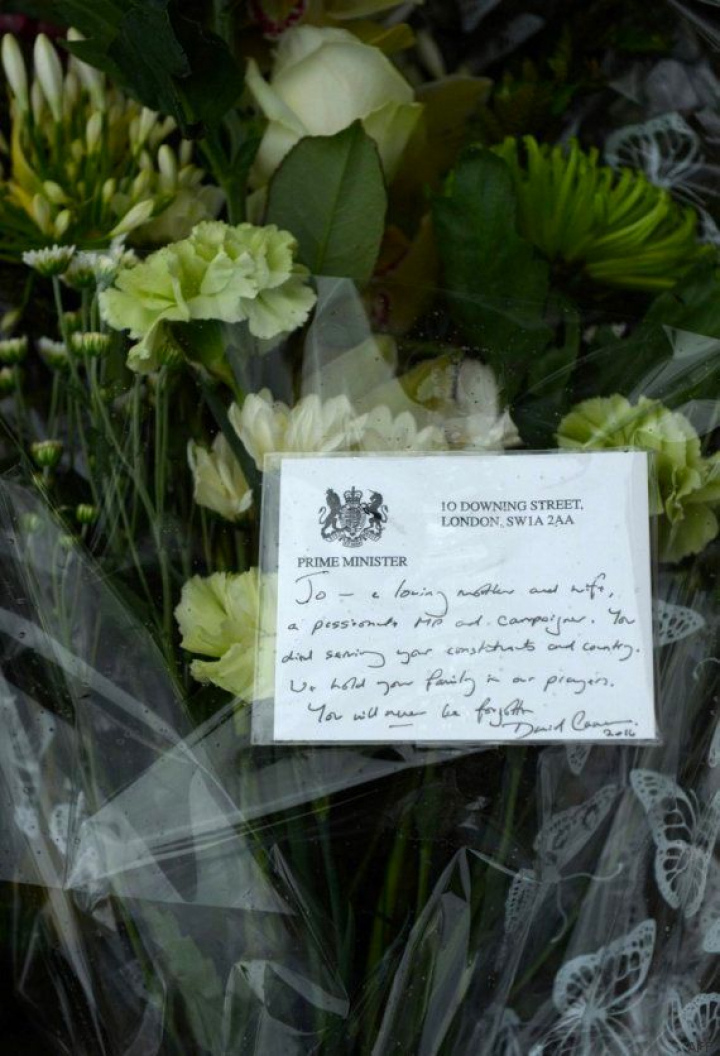 10 DOWNING STREET,
LONDON, SW1A 2AA
PRIME MINISTER
Jo – a loving mother and wife,
a passionate MP and campaigner. You
died serving your constituents and country.
We hold your family in our prayers.
You will never be forgotten
David Cameron.
2016
AFP